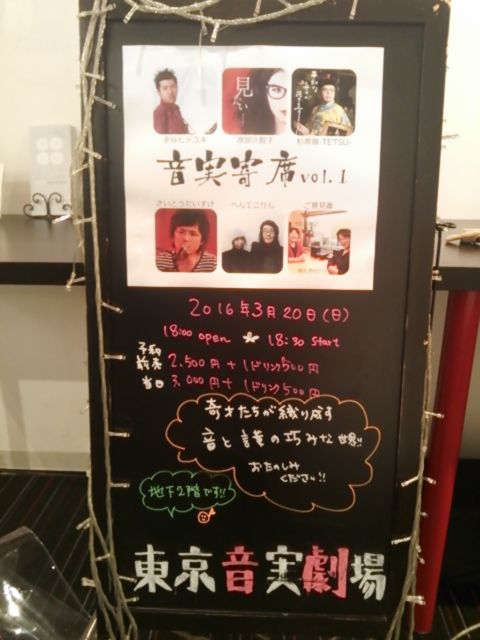 見たい
音実寄席 vol.1
さいとうだいすけ
へんてこりん
ご意見番
2016年3月20日(日)
18:00 open ★ 18:30 start
予約
前売 2.500円+1ドリンク500円
当日 3.000円+1ドリンク500円
奇才たちが織り成す
音と言葉の巧みな世界!!
おたのしみ
ください!!
地下2階です!!
東京音実劇場